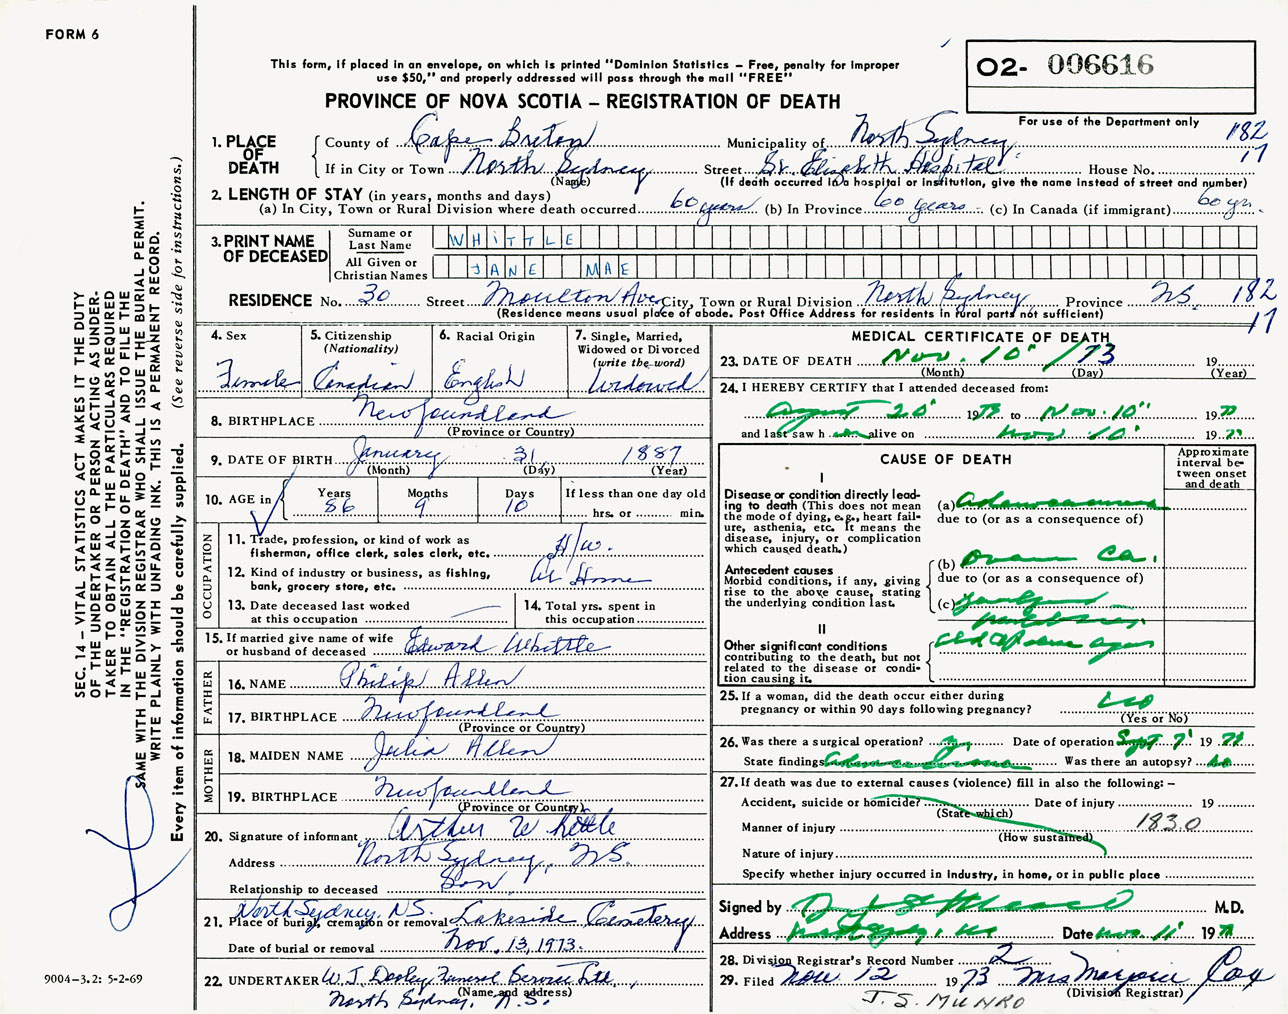 FORM 6
This form, if placed in an envelope, on which is printed "Dominion Statistics – Free, penalty for improper
use $50," and properly addressed will pass through the mail "FREE"
O2- 006616
For use of the Department only
PROVINCE OF NOVA SCOTIA – REGISTRATION OF DEATH
182
17
1. PLACE OF DEATH
County of Cape Breton Municipality of North Sydney
If in City or Town North Sydney Street St. Elizabeth Hospital House No.
(Name) (If death occurred in a hospital or institution, give the name instead of street and number)
2. LENGTH OF STAY (in years, months and days)
(a) In City, Town or Rural Division where death occurred 60 years (b) In Province 60 years (c) In Canada (if immigrant) 60 yr.
3. PRINT NAME OF DECEASED
Surname or Last Name WHITTLE
All Given or Christian Names JANE MAE
RESIDENCE No. 30 Street Moulton Ave City, Town or Rural Division North Sydney Province NS. 182
17
(Residence means usual place of abode. Post Office Address for residents in rural parts not sufficient)
4. Sex Female
5. Citizenship (Nationality) Canadian
6. Racial Origin English
7. Single, Married, Widowed or Divorced (write the word) Widowed
8. BIRTHPLACE Newfoundland
(Province or Country)
9. DATE OF BIRTH January 31 1887
(Month) (Day) (Year)
10. AGE in Years 86 Months 9 Days 10 If less than one day old
hrs. or min.
OCCUPATION
11. Trade, profession, or kind of work as fisherman, office clerk, sales clerk, etc. H/w.
12. Kind of industry or business, as fishing, bank, grocery store, etc. At Home
13. Date deceased last worked at this occupation
14. Total yrs. spent in this occupation
15. If married give name of wife or husband of deceased Edward Whittle
FATHER
16. NAME Philip Allen
17. BIRTHPLACE Newfoundland
(Province or Country)
MOTHER
18. MAIDEN NAME Julia Allen
19. BIRTHPLACE Newfoundland
(Province or Country)
20. Signature of informant Arthur Whittle
Address North Sydney, NS.
Relationship to deceased Son
21. Place of burial, cremation or removal North Sydney, N.S. Lakeside Cemetery
Date of burial or removal Nov. 13, 1973.
22. UNDERTAKER W. J. Dooley Funeral Service Ltd.,
(Name and address)
North Sydney, N.S.
MEDICAL CERTIFICATE OF DEATH
23. DATE OF DEATH Nov. 10" /73 19
(Month) (Day) (Year)
24. I HEREBY CERTIFY that I attended deceased from:
August 20' 1973 to Nov. 10" 1973
and last saw h alive on Nov 10' 1973
CAUSE OF DEATH
Approximate interval between onset and death
I
Disease or condition directly leading to death (This does not mean the mode of dying, e.g., heart failure, asthenia, etc. It means the disease, injury, or complication which caused death.)
(a)
due to (or as a consequence of)
Antecedent causes
Morbid conditions, if any, giving rise to the above cause, stating the underlying condition last.
(b) Ca.
due to (or as a consequence of)
(c)
II
Other significant conditions
contributing to the death, but not related to the disease or condition causing it.
25. If a woman, did the death occur either during pregnancy or within 90 days following pregnancy? no
(Yes or No)
26. Was there a surgical operation? Date of operation Sept 7' 1973
State findings Was there an autopsy? no
27. If death was due to external causes (violence) fill in also the following: –
Accident, suicide or homicide? Date of injury 19
(State which)
Manner of injury 1830
(How sustained)
Nature of injury
Specify whether injury occurred in industry, in home, or in public place
Signed by M.D.
Address Date Nov. 11' 197
28. Division Registrar's Record Number 2
29. Filed Nov 12 1973 Mrs Marjorie Cox
(Division Registrar)
J. S. MUNRO
SEC. 14 – VITAL STATISTICS ACT MAKES IT THE DUTY
OF THE UNDERTAKER OR PERSON ACTING AS UNDER-
TAKER TO OBTAIN ALL THE PARTICULARS REQUIRED
IN THE "REGISTRATION OF DEATH" AND TO FILE THE
SAME WITH THE DIVISION REGISTRAR WHO SHALL ISSUE THE BURIAL PERMIT.
WRITE PLAINLY WITH UNFADING INK. THIS IS A PERMANENT RECORD.
Every item of information should be carefully supplied. (See reverse side for instructions.)
9004–3.2: 5-2-69